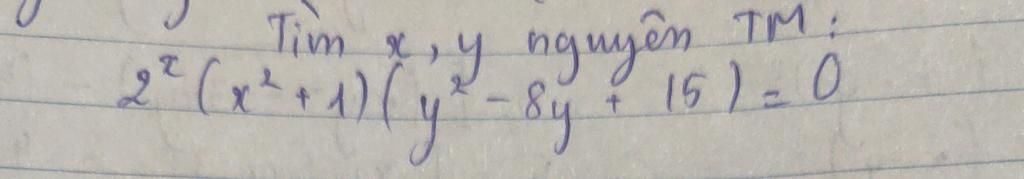 Tìm x, y nguyên TM:
2ˣ(x² + 1)(y² - 8y + 15) = 0